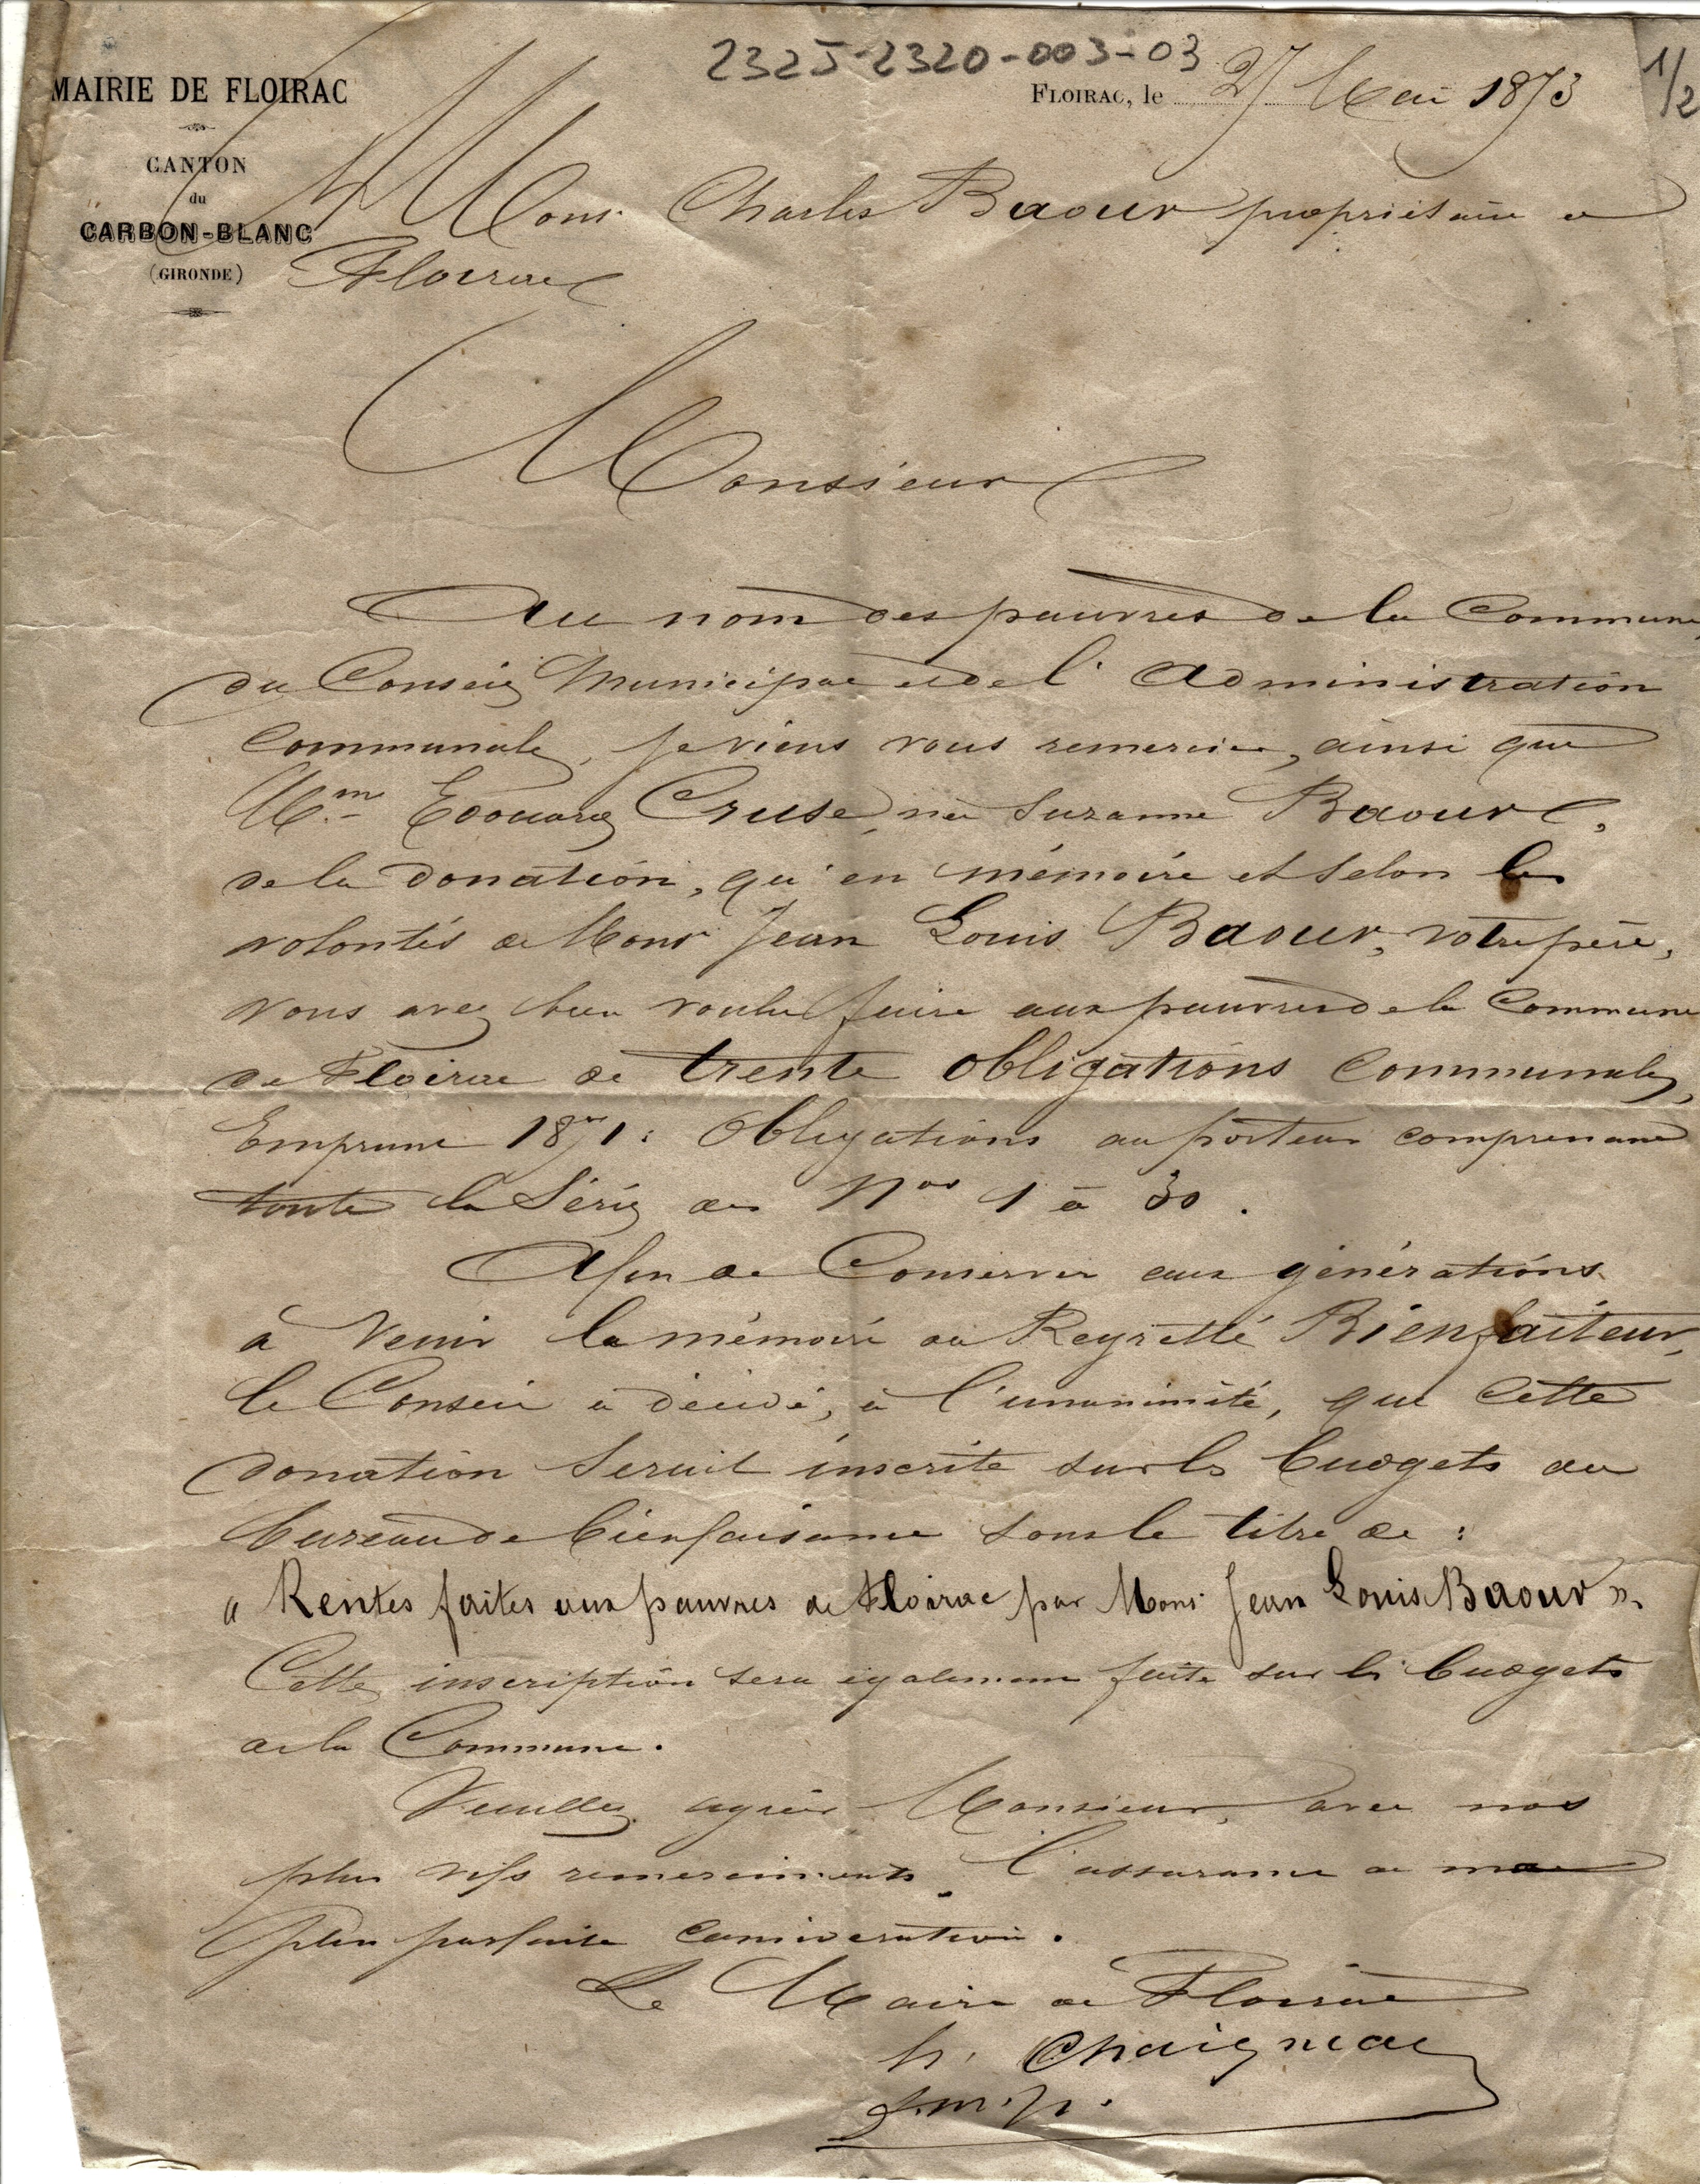 2325-2320-003-03
1/2
MAIRIE DE FLOIRAC
CANTON
du
CARBON-BLANC
(GIRONDE)
FLOIRAC, le 27 Mai 1873
Monsr Charles Baour propriétaire a
Floirac
Monsieur
Au nom des pauvres de la Commune,
du Conseil Municipal et de l'Administration
Communale, je viens vous remercier, ainsi que
Mme Edouard Cruse, née Suzanne Baour,
de la donation, qu'en mémoire et selon les
volontés de Monsr Jean Louis Baour, votre père,
vous avez bien voulu faire aux pauvres de la Commune
de Floirac de trente obligations Communales,
Emprunt 1871: Obligations au porteur comprenant
toute la Série des Nos 1 à 30.
Afin de Conserver aux générations
à venir la mémoire du Regretté Bienfaiteur,
le Conseil a décidé, à l'unanimité, que cette
donation serait inscrite sur les budgets du
bureau de bienfaisance sous le titre de :
" Rentes faites aux pauvres de Floirac par Monsr Jean Louis Baour ".
Cette inscription sera également faite sur les budgets
de la Commune.
Veuillez agréer Monsieur, avec nos
plus vifs remerciments l'assurance de ma
plus parfaite considération.
Le Maire de Floirac
h. Chaigneau